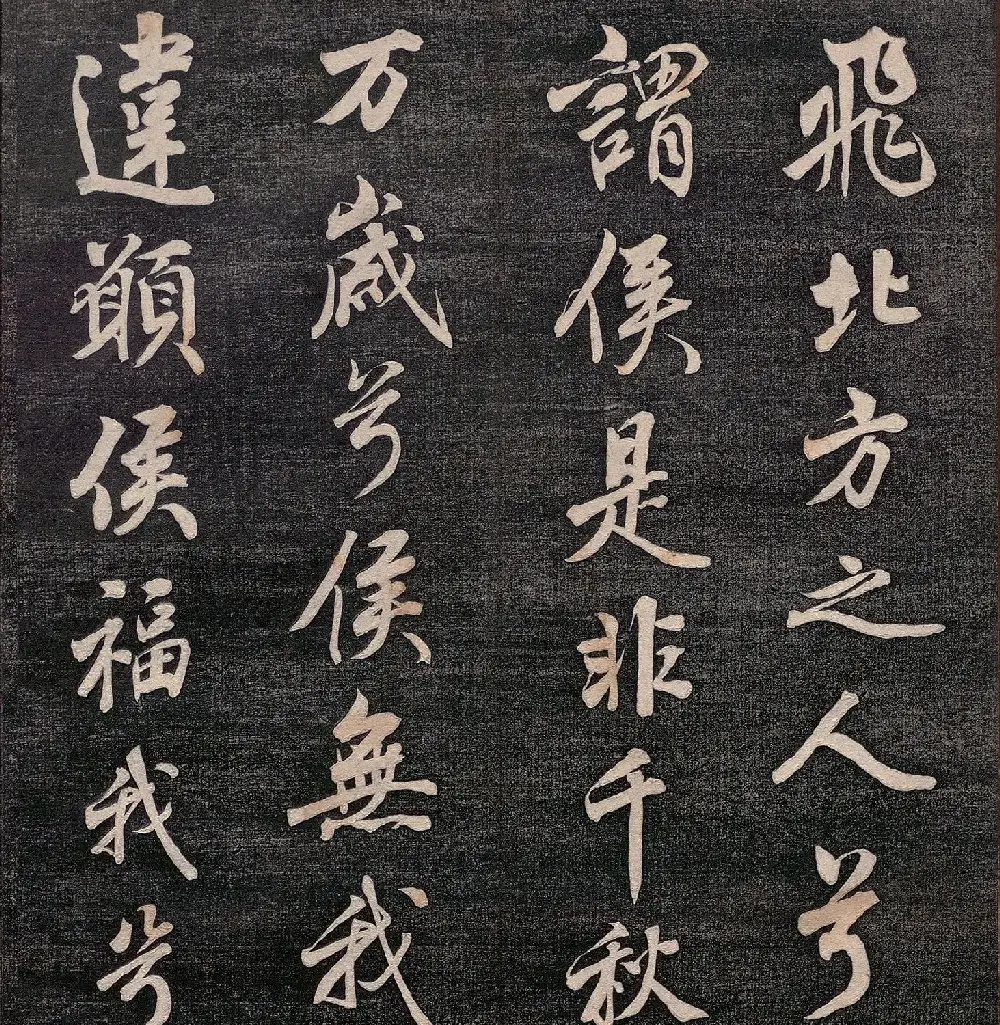 飛北方之人兮
謂侯是非千秋
万歲兮侯無我
違願侯福我兮